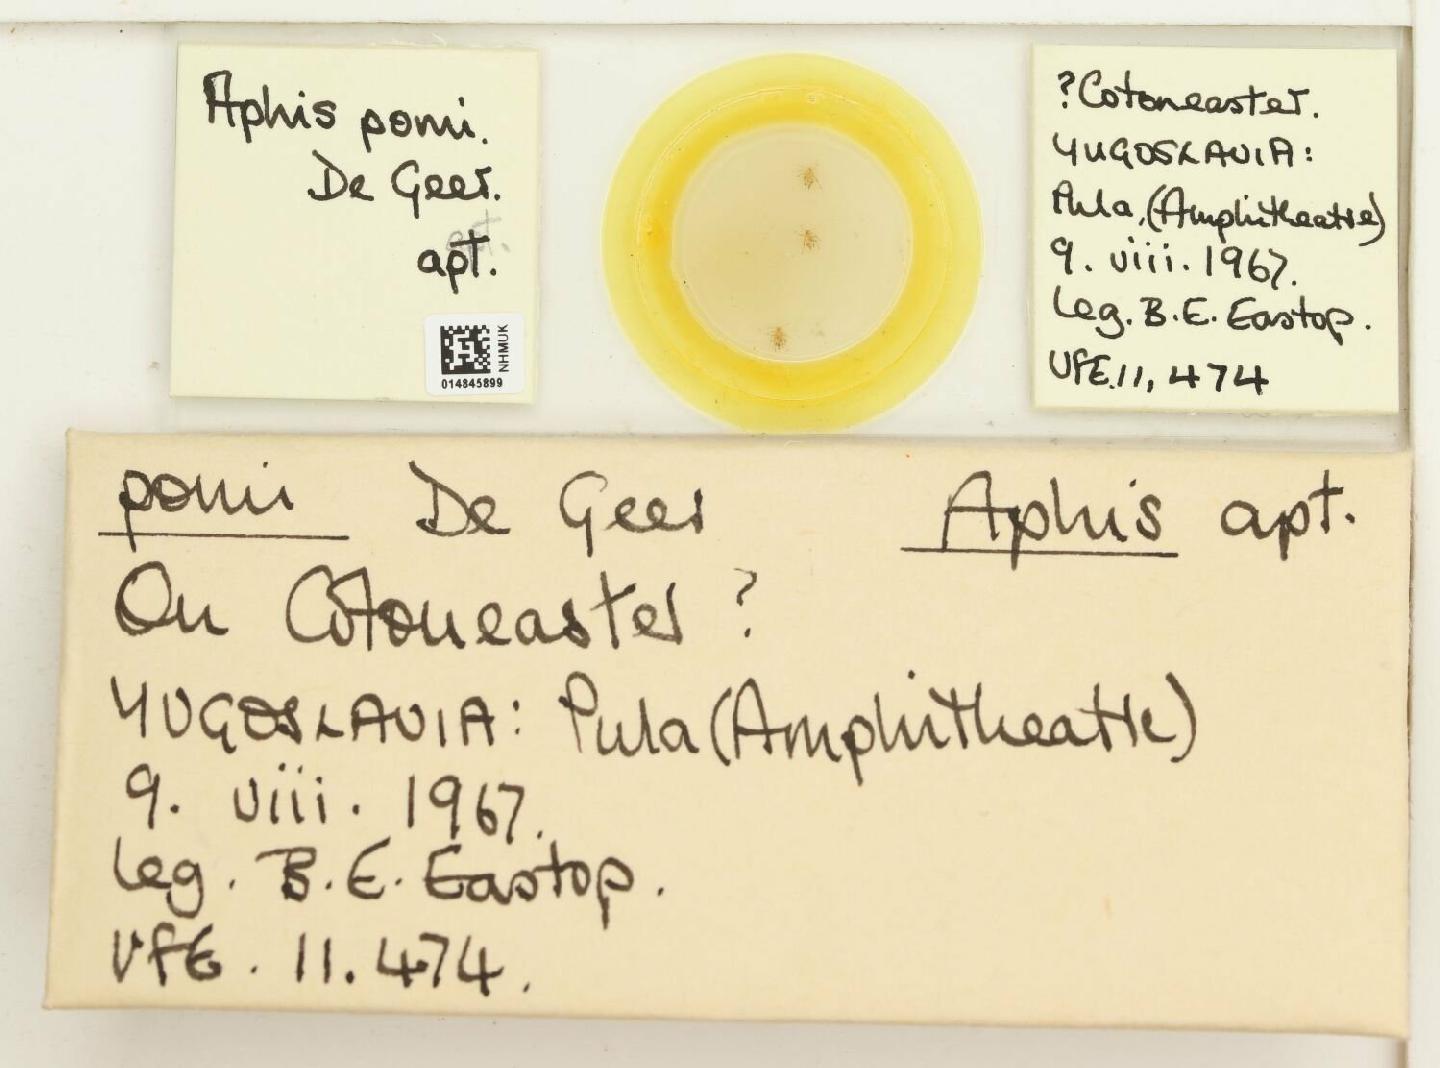 Aphis pomi.
De Geer.
apt.
apt.
NHMUK
014845899
?Cotoneaster.
YUGOSLAVIA:
Pula, (Amphitheatre)
9. viii. 1967.
Leg. B.E. Eastop.
VFE.11, 474
pomi De Geer Aphis apt.
On Cotoneaster ?
YUGOSLAVIA: Pula (Amphitheatre)
9. viii. 1967.
Leg. B.E. Eastop.
VFE. 11. 474.